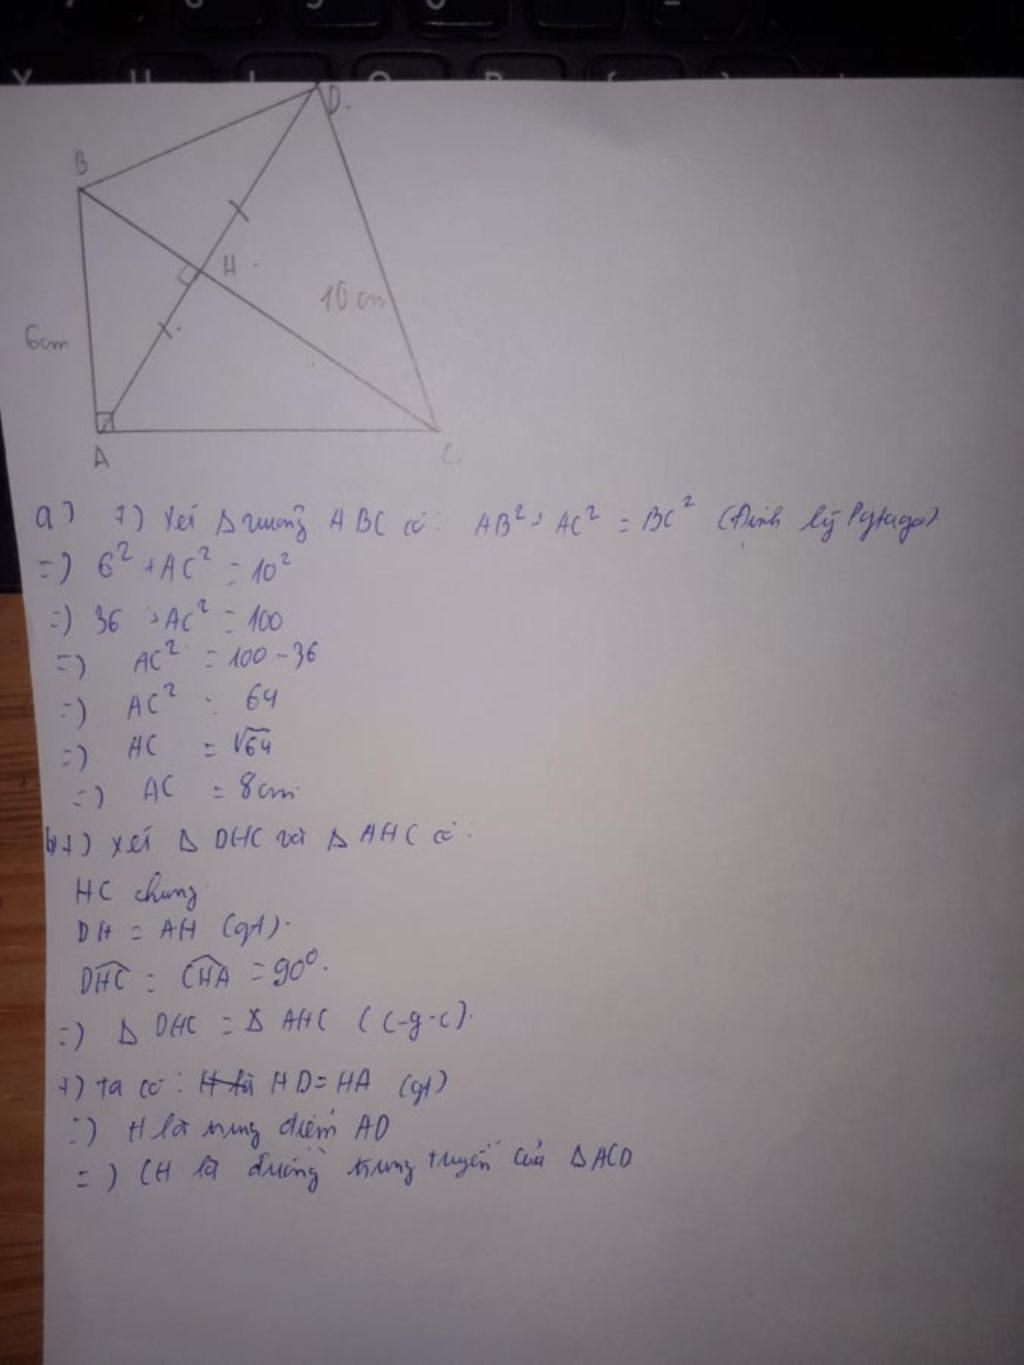 D.
B
H
10 cm
6cm
A
C.
a) +) Xét Δ vuông ABC có: AB² + AC² = BC² (Định lý Pytago)
=) 6² + AC² = 10²
=) 36 + AC² = 100
=) AC² = 100 - 36
=) AC² = 64
=) AC = √64
=) AC = 8cm
b) +) Xét Δ DHC và Δ AHC có:
HC chung
DH = AH (gt).
DHC = CHA = 90°.
=) Δ DHC = Δ AHC (c-g-c).
+) ta có: H là HD = HA (gt)
=) H là trung điểm AD
=) CH là đường trung tuyến của Δ ACD